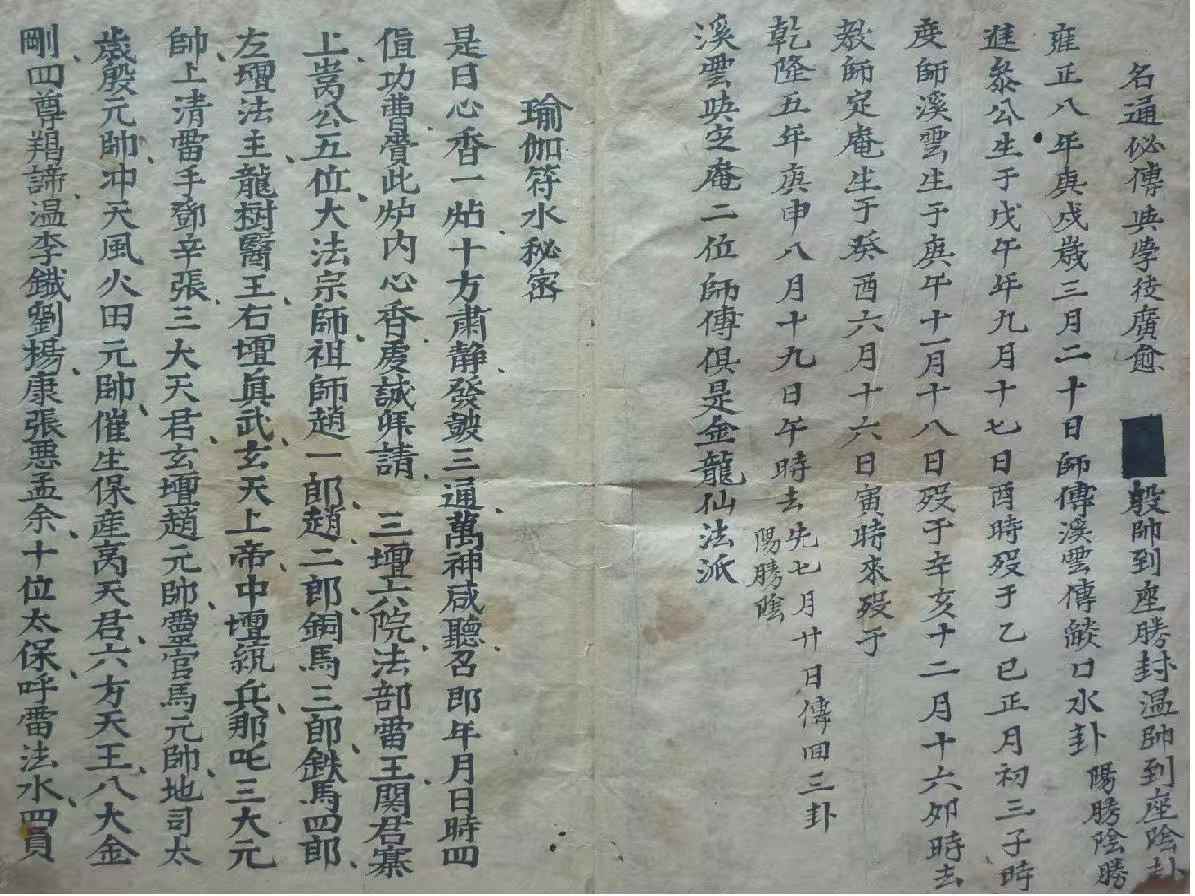 名通秘傳與學後廣愈 殷帥到座勝封溫帥到座陰卦
雍正八年庚戌歲三月二十日師傅溪雲傳燄口水卦 陽勝陰勝
進叅公生于戊午年九月十七日酉時歿于乙巳正月初三子時
度師溪雲生于庚午十一月十八日歿于辛亥十二月十六夘時去
教師定庵生于癸酉六月十六日寅時來歿于
乾隆五年庚申八月十九日午時去先七月廿日傳回三卦
陽勝陰
溪雲與定庵二位師傅俱是金龍仙法派
瑜伽符水秘密
是日心香一炷十方肅静發皷三通萬神咸聽召郎年月日時四
值功曹賫此炉内心香虔誠拜請三壇六院法部雷王関君寨
上嵩公五位大法宗師祖師趙一郎趙二郎銅馬三郎鉄馬四郎
左壇法主龍樹醫王右壇真武玄天上帝中壇統兵那叱三大元
帥上清雷手鄧辛張三大天君玄壇趙元帥靈官馬元帥地司太
歲殷元帥冲天風火田元帥催生保產高天君六方天王八大金
剛四尊羯諦温李鐵劉楊康張悪孟余十位太保呼雷法水四員